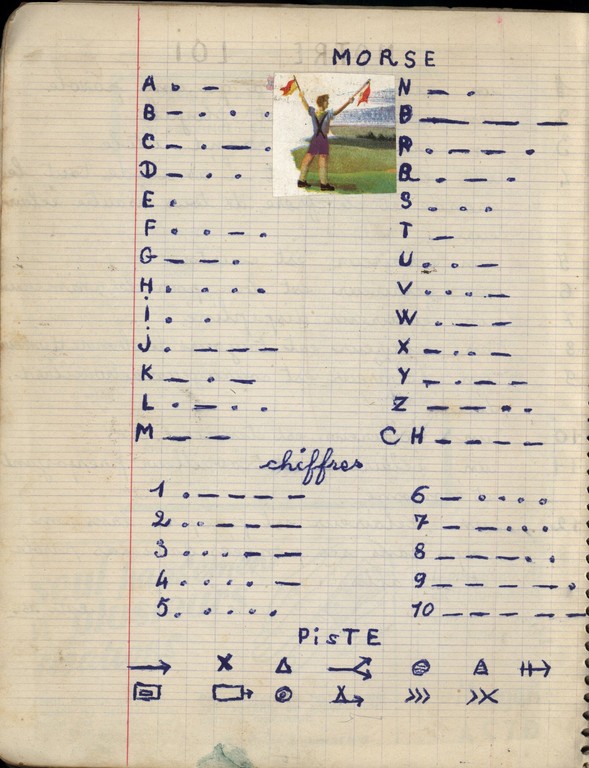 MORSE
A . — N — .
B — . . . B — — —
C — . — . P . — — .
D — . . R . — .
E . S . . .
F . . — . T —
G — — . U . . —
H . . . . V . . . —
I . . W . — —
J . — — — X — . . —
K — . — Y — . — —
L . — . . Z — — . .
M — — CH — — — —
chiffres
1 . — — — — 6 — . . . .
2 . . — — — 7 — — . . .
3 . . . — — 8 — — — . .
4 . . . . — 9 — — — — .
5 . . . . . 10 — — — — —
PisTE